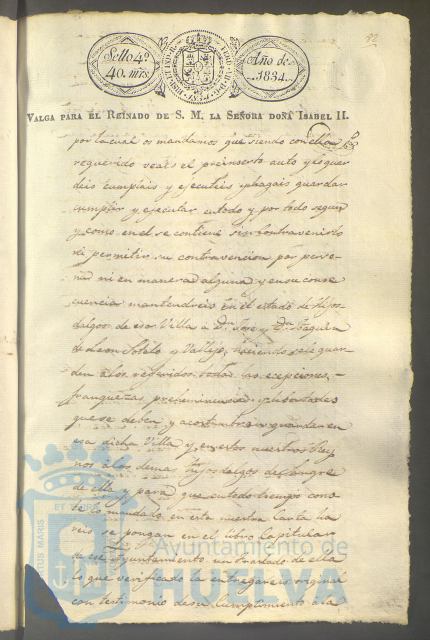 92
Sello 4º
40. mrs.
Año de
1834.
VALGA PARA EL REINADO DE S. M. LA SEÑORA DOÑA ISABEL II.
por la cual os mandamos que siendo con ella
requerido veais el preinserto auto y lo guar
deis cumplais y ejecuteis y hagais guardar
cumplir y ejecutar en todo y por todo segun
y como en el se contiene sin contravenirlo
ni permitir su contravencion por perso-
na ni en manera alguna y en su conse
cuencia mantendreis en el estado de Hijos
dalgos de esa Villa a Dn. Jose y Dn. Joaquin
de Leon Sotelo y Vallejo, haciendo se les guar
den a los referidos todas las ecepciones,
franquezas preheminencias y libertades
que se deben y acostumbran guardar en
esa dicha Villa y en estos nuestros Rey
nos a los demas hijosdalgos de Sangre
de ella y para que en todo tiempo cons
te lo mandado en esta nuestra Carta ha
reis se pongan en el libro Capitular
de ese Ayuntamiento un traslado de ella
lo que verificado la entregareis original
con testimonio de su cumplimiento a la
Ayuntamiento de
HUELVA